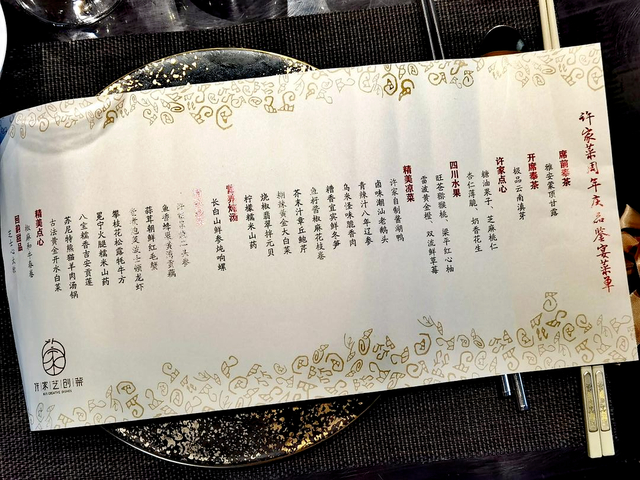 许家菜周年庆品鉴宴菜单
席前奉茶
雅安蒙顶甘露
开席奉茶
极品云南滇芽
许家点心
糖油果子、芝麻桃仁
杏仁薄脆、奶香花生
四川水果
旺苍猕猴桃、梁平红心柚
雷波黄金橙、双流鲜草莓
精美凉菜
许家自制酱湖鸭
卤味潮汕老鹅头
青辣汁八年辽参
乌米连味脆香肉
糟香宜宾鲜冬笋
鱼籽酱椒麻花枝卷
芥末汁章丘鲍芹
糊辣黄金大白菜
烧椒翡翠拌元贝
柠檬糯米山药
炖汤
长白山鲜参炖响螺
二头参
鱼香
蒜茸朝鲜红毛蟹
芝士龙虾
攀枝花松露牦牛方
冕宁火腿糯米山药
八宝糯香吉安黄莲
苏尼特熊猫羊肉汤锅
古法黄金开水白菜
精美点心
椒麻和牛春卷
回韵甜品
许家艺创菜